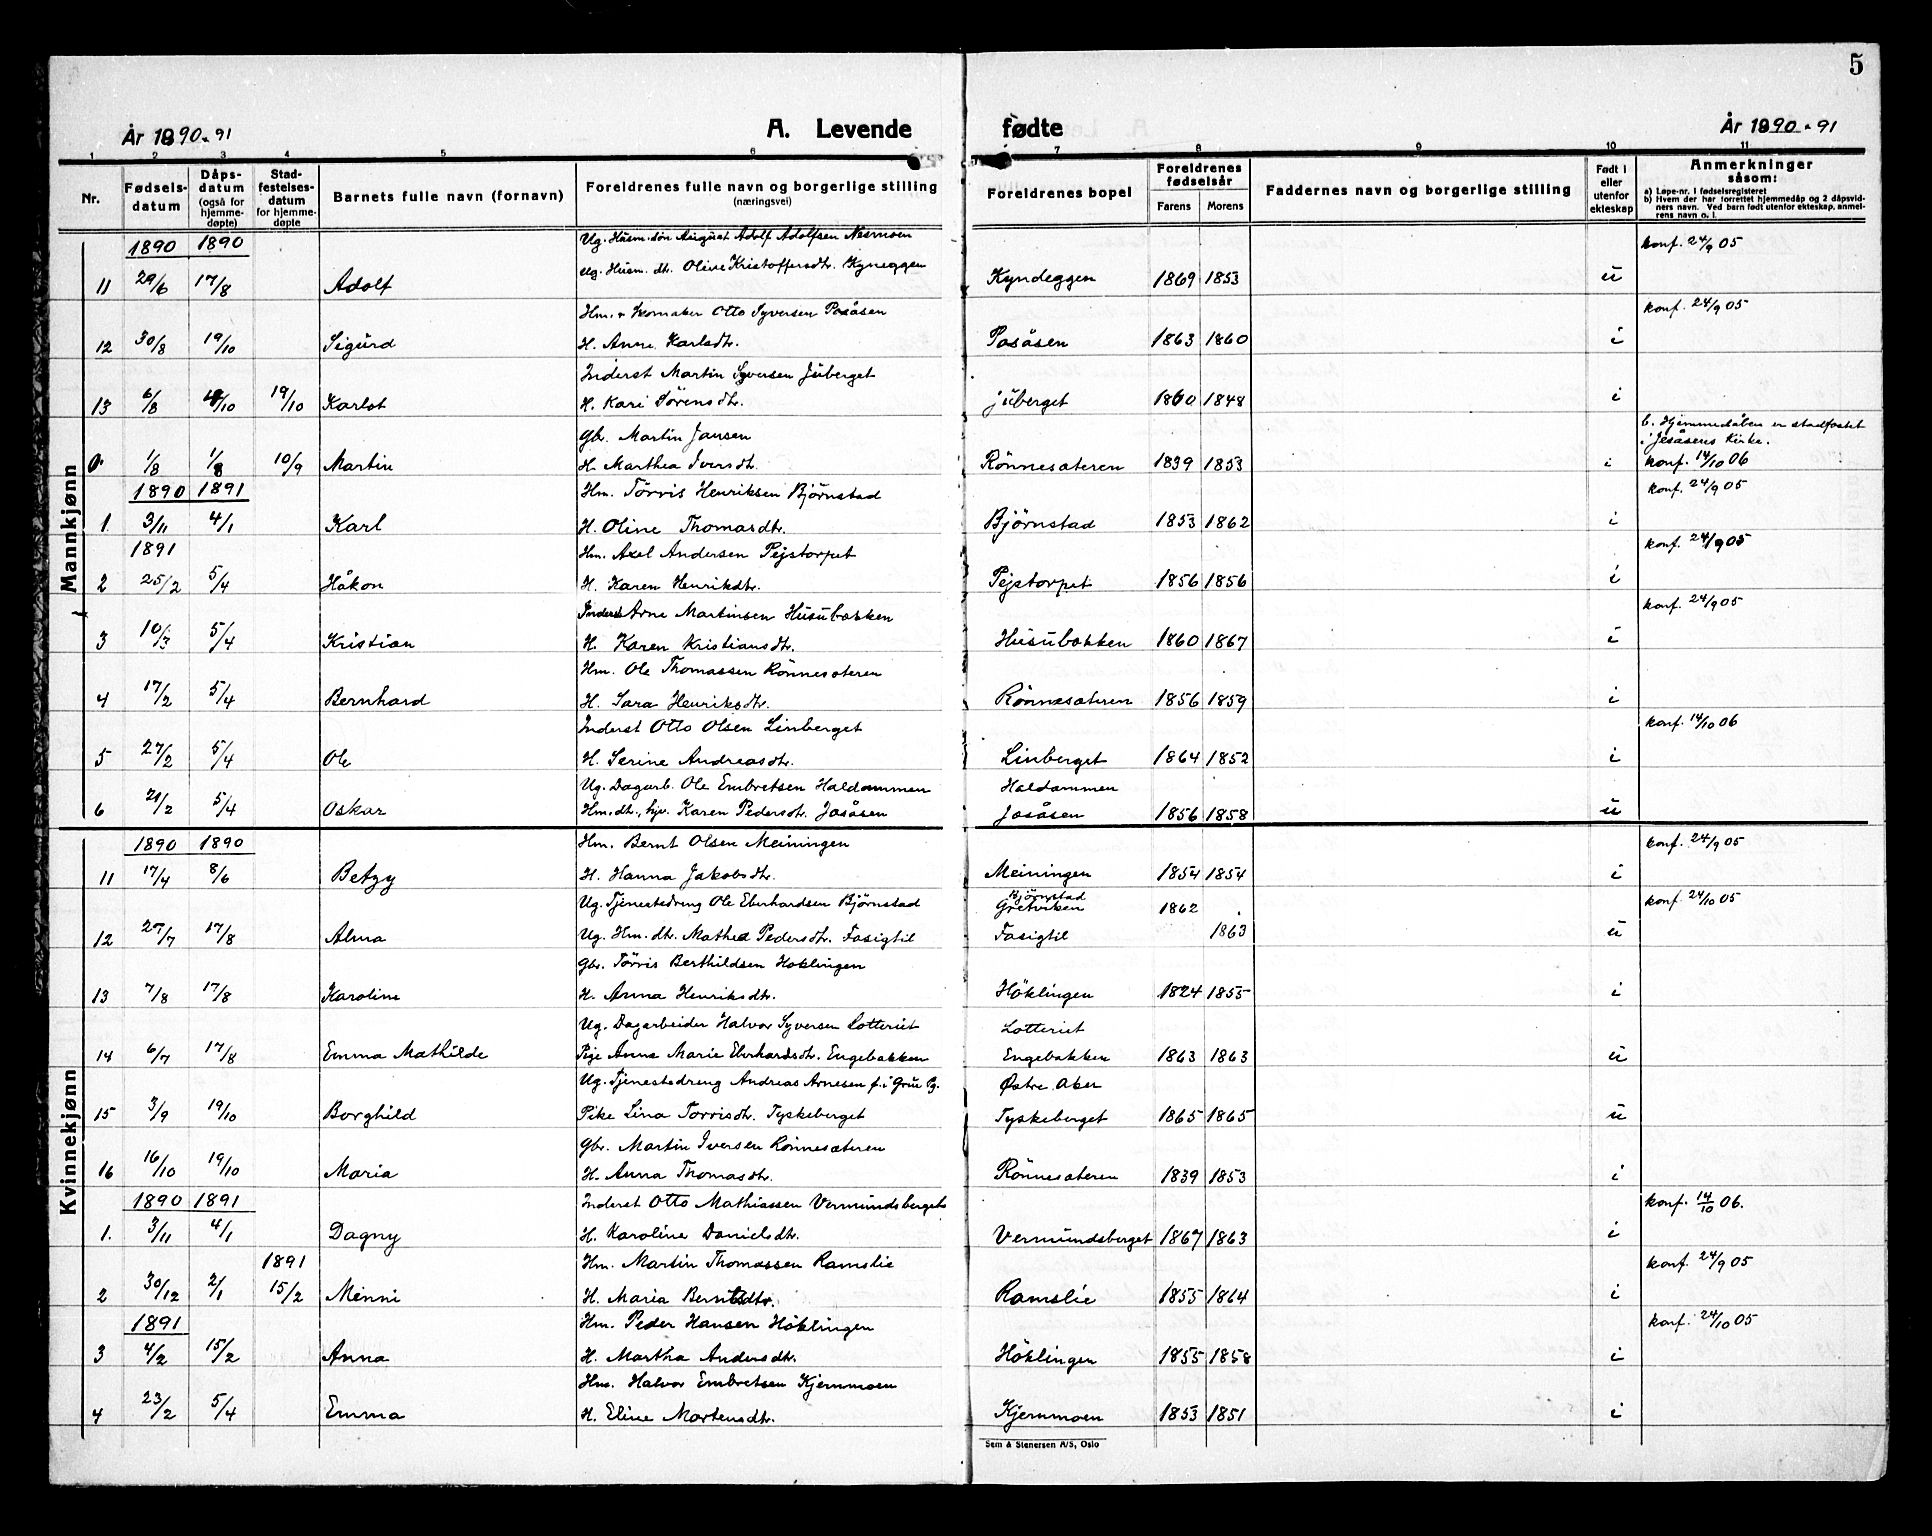 5
År 1890-91 A. Levende fødte År 1890-91
1 2 3 4 5 6 7 8 9 10 11
Nr. Fødselsdatum Dåpsdatum (også for hjemmedøpte) Stadfestelsesdatum for hjemmedøpte Barnets fulle navn (fornavn) Foreldrenes fulle navn og borgerlige stilling (næringsvei) Foreldrenes bopel Foreldrenes fødselsår Farens Morens Faddernes navn og borgerlige stilling Født i eller utenfor ekteskap Anmerkninger såsom:
a) Løpe-nr. i fødselsregisteret
b) Hvem der har forrettet hjemmedåp og 2 dåpsvidners navn. Ved barn født utenfor ekteskap, anmelerens navn o. l.
Mannkjønn
1890 1890 Ug. Husm. søn August Adolf Adolfsen Nesmoen konf. 24/9 05
11 29/6 17/8 Adolf Ug. Husm. dt. Oline Kristoffersdt. Kyneggen Kyndeggen 1869 1853 u
Hm. & skomaker Otto Syversen Posåsen konf. 24/9 05
12 30/8 19/10 Sigurd H. Anne Karlsdt. Posåsen 1863 1860 i
Inderst Martin Syversen Juberget
13 6/8 19/10 Karlot H. Kari Sørensdt. Juberget 1860 1848 i
Gbr. Martin Jansen b. Hjemmedåben er stadfestet i Jesåsens Kirke.
0 1/8 1/8 10/9 Martin H. Marthea Iversdt. Rönnesæteren 1839 1853 i konf. 14/10 06
1890 1891 Hm. Törris Henriksen Bjørnstad konf. 24/9 05
1 3/11 4/1 Karl H. Oline Thomasdt. Bjørnstad 1853 1862 i
1891 Hm. Axel Andersen Pejstorpet konf. 24/9 05
2 25/2 5/4 Håkon H. Karen Henrikdt. Pejstorpet 1856 1856 i
Inderst Arne Martinsen Husubakken konf. 24/9 05
3 10/3 5/4 Kristian H. Karen Kristiansdt. Husubakken 1860 1867 i
Hm. Ole Thomassen Rönnesæteren
4 17/2 5/4 Bernhard H. Sara Henriksdt. Rönnesæteren 1856 1859 i
Inderst Otto Olsen Linberget konf. 14/10 06
5 27/2 5/4 Ole H. Serine Andreasdt. Linberget 1864 1852 i
Ug. Dagarb. Ole Embretsen Haldammen Haldammen
6 21/2 5/4 Oskar Hm. dt., hjv. Karen Pedersdt. Josåsen Josåsen 1856 1858 u
Kvinnekjønn
1890 1890 Hm. Bernt Olsen Meiningen konf. 24/9 05
11 17/4 8/6 Betzy H. Hanna Jakobsdt. Meiningen 1854 1854 i
Ug. Tjenestedreng Ole Eberhardsen Bjørnstad Bjørnstad Gretviken 1862 konf. 24/10 05
12 27/7 17/8 Alma Ug. Hm. dt. Mathea Pedersdt. Fasigtil Fasigtil 1863 u
Gbr. Törris Berthildsen Höklingen
13 7/8 17/8 Karoline H. Anna Henriksdt. Höklingen 1824 1855 i
Ug. Dagarbeider Halvor Syversen Lotteriet Lotteriet
14 6/7 17/8 Emma Mathilde Pige Anna Marie Eberhardsdt. Engebakken Engebakken 1863 1863 u
Ug. Tjenestedreng Andreas Arnesen f. i Grue Pg. Østre Aker
15 3/9 19/10 Borghild Pike Lina Torrisdt. Tyskeberget Tyskeberget 1865 1865 u
Gbr. Martin Iversen Rönnesæteren
16 16/10 19/10 Maria H. Anna Thomasdt. Rönnesæteren 1839 1853 i
1890 1891 Inderst Otto Mathiassen Vermundsberget konf. 14/10 06.
1. 3/11 4/1 Dagny H. Karoline Danielsdt. Vermundsberget 1867 1863 i
1891 Hm. Martin Thomassen Ramslie konf. 24/9 05
2 30/12 2/1 15/2 Minni H. Maria Berntsdt. Ramslie 1855 1864 i
1891 Hm. Peder Hansen Höklingen konf. 24/10 05
3 4/2 15/2 Anna H. Martha Andersdt. Höklingen 1855 1858 i
Hm. Halvor Embretsen Kjernmoen
4 23/2 5/4 Emma H. Eline Mortensdt. Kjernmoen 1853 1851 i
Sem & Stenersen A/S, Oslo